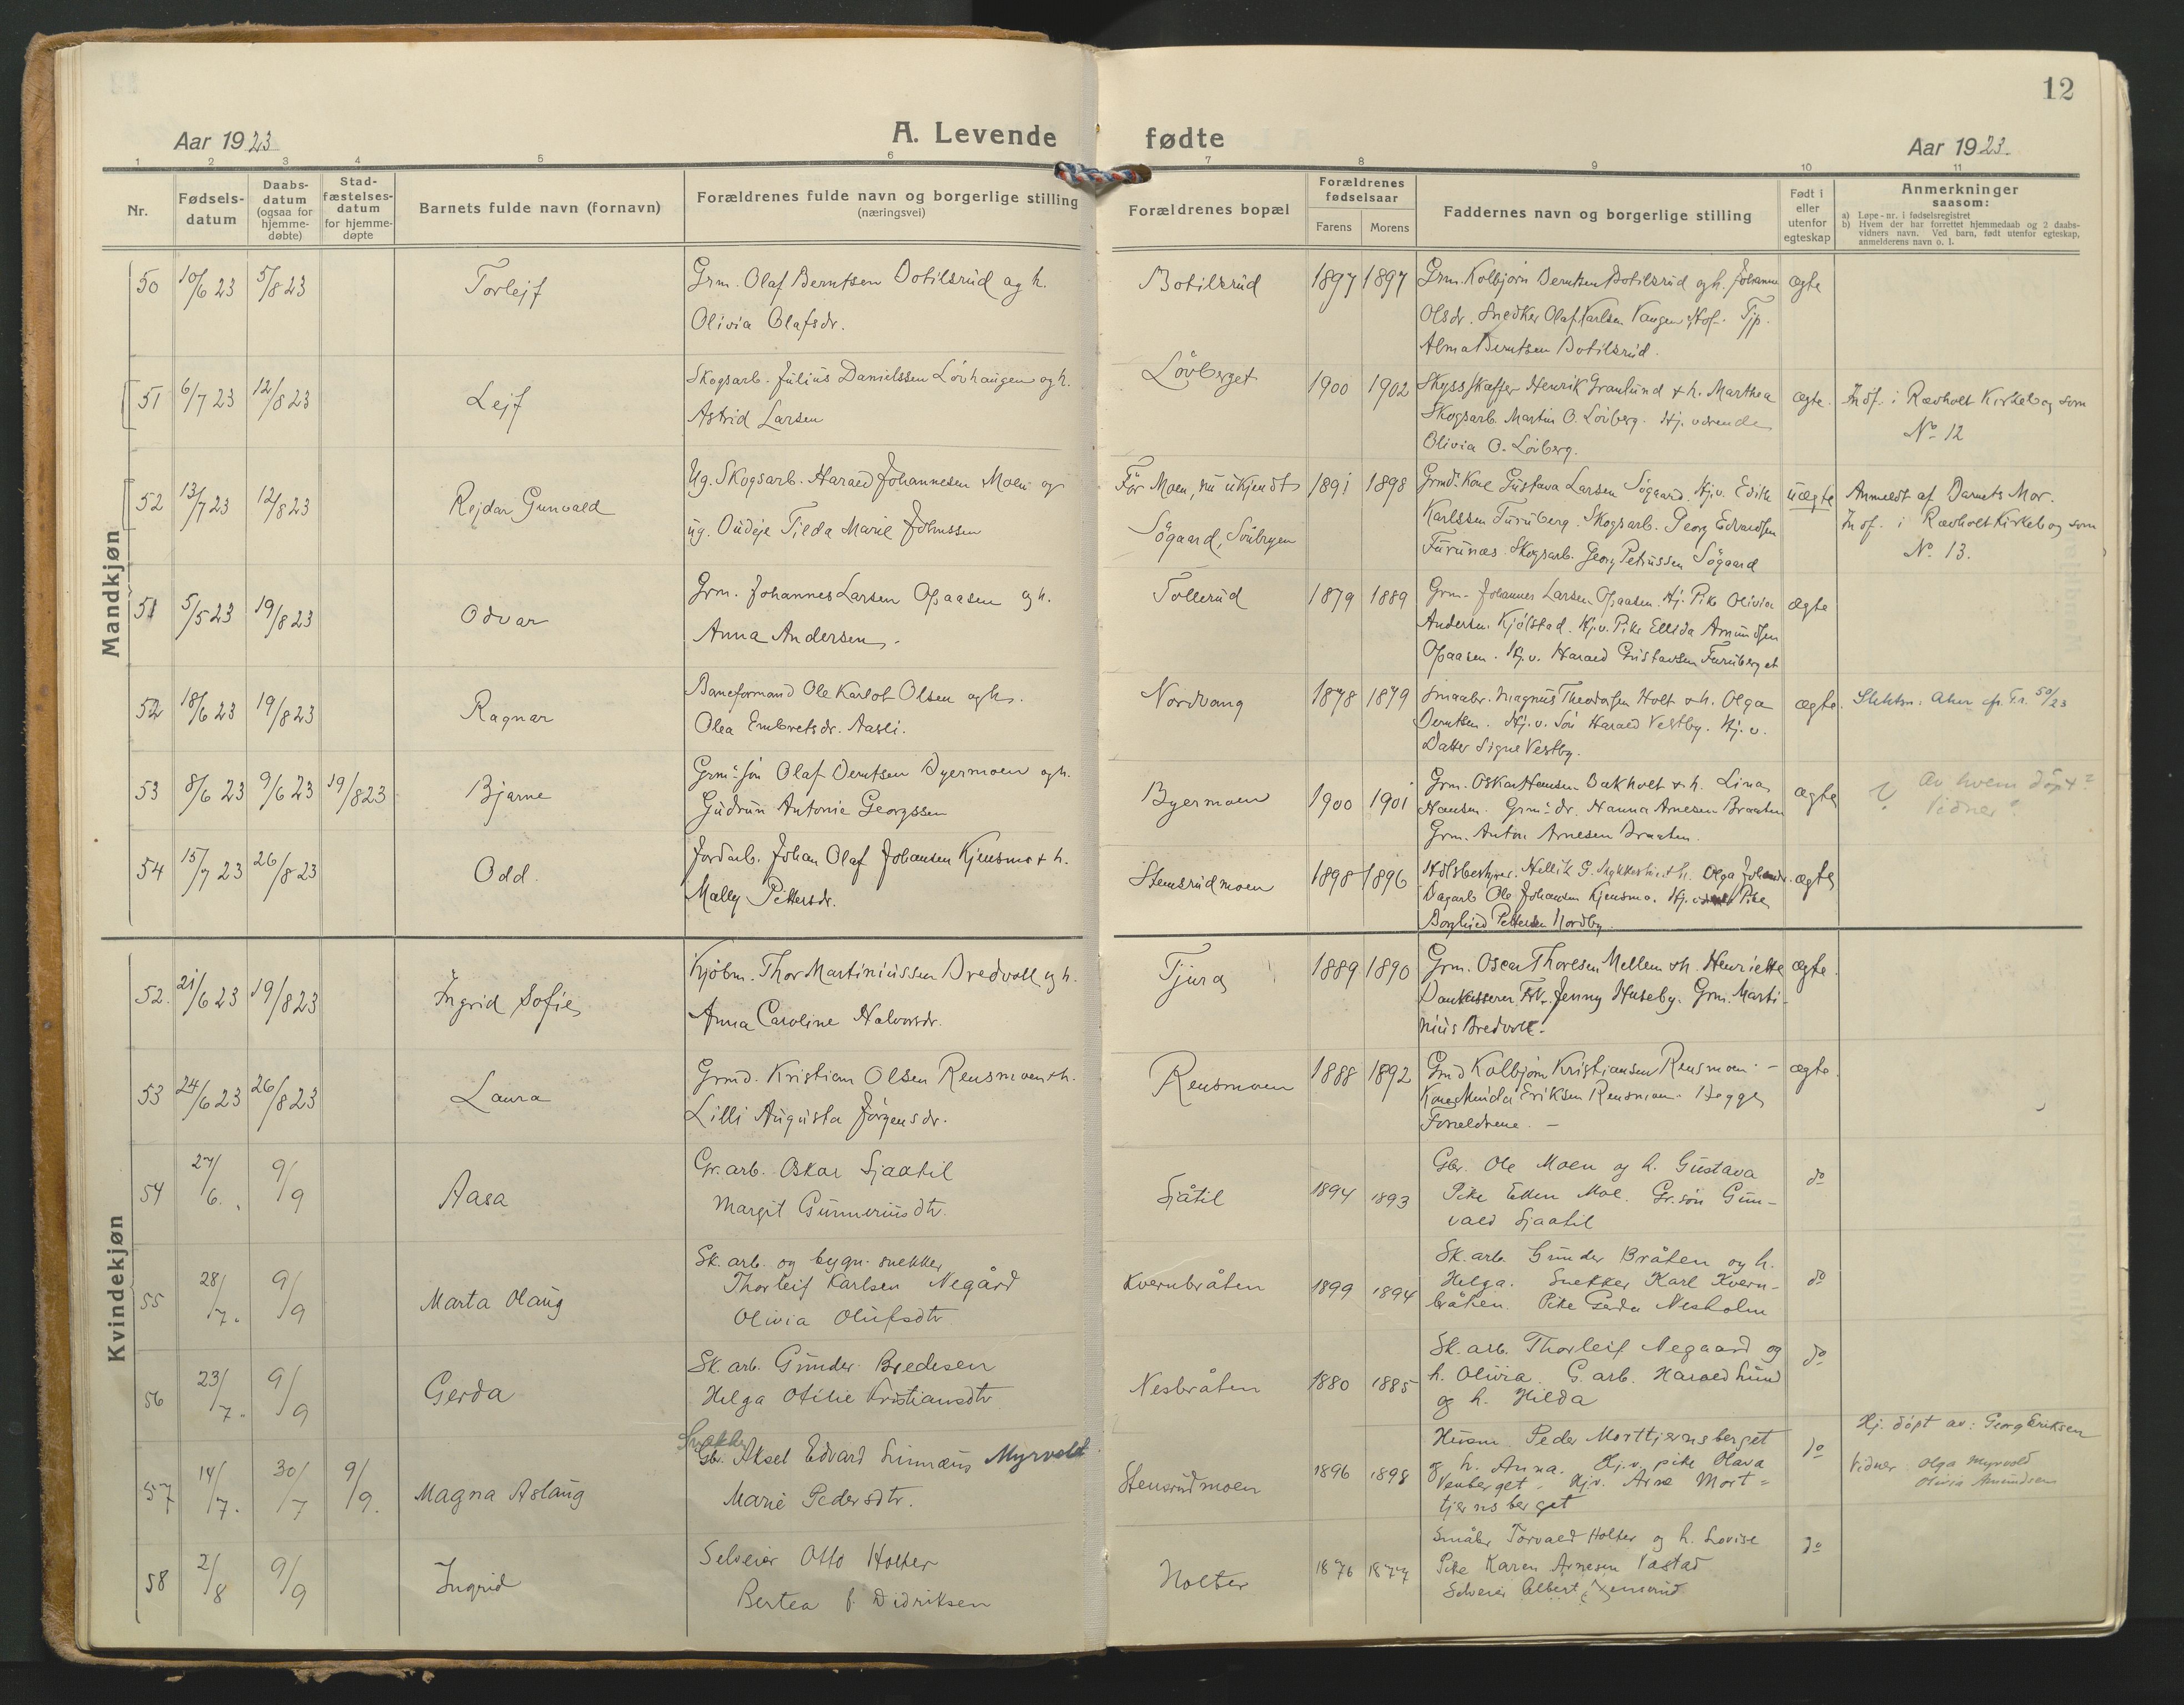 12
Aar 1923
A. Levende fødte
Aar 1923.
1 2 3 4 5 6 7 8 9 10 11
Nr.
Fødsels-
datum
Daabs-
datum
(ogsaa for
hjemme-
døbte)
Stad-
fæstelses-
datum
for hjemme-
døpte
Barnets fulde navn (fornavn)
Forældrenes fulde navn og borgerlige stilling
(næringsvei)
Forældrenes bopæl
Forældrenes
fødselsaar
Farens Morens
Faddernes navn og borgerlige stilling
Født i
eller
utenfor
egteskap
Anmerkninger
saasom:
a) Løpe-nr. i fødselsregistret
b) Hvem der har forrettet hjemmedaab og 2 daabs-
vidners navn. Ved barn, født utenfor egteskap,
anmelderens navn o. l.
Mandkjøn
50 10/6 23 5/8 23 Torlejf
Grm. Olaf Berntsen Botilsrud og h.
Olivia Olafsdr.
Botilsrud 1897 1897
Grm. Kolbjørn Berntsen Botilsrud og h. Johanne
Olsdr. Snedker Olaf Karlsen Vangen, Hof. Tjp.
Alma Berntsen Botilsrud.
ægte
51 6/7 23 12/8 23 Lejf
Skogsarb. Julius Danielssen Lövhaugen og h.
Astrid Larsen
Lövberget 1900 1902
Skysskaffer Henrik Granlund & h. Marthea
Skogsarb. Martin O. Lövberg. Hj. værende
Olivia O. Lövberg.
ægte.
Indf. i Rævholt Kirkebog som
No 12
52 13/7 23 12/8 23 Rejdar Gunvald
Ug. Skogsarb. Harald Johannesen Moen og
ug. Budeje Tilda Marie Johnssen
För Moen, nu ukjendt
Sögaard, Sönbyen
1891 1898
Grmd. Kone Gustava Larsen Sögaard. Hj.v. Edith
Karlssen Furuberg. Skogsarb. Georg Edvardsen
Furunæs. Skogsarb. Georg Petrussen Sögaard
uægte
Anmeldt af Barnets Mor.
Indf. i Rævholt Kirkebog som
No. 13.
51 5/5 23 19/8 23 Odvar
Grm. Johannes Larsen Opaasen og h.
Anna Andersen.
Tollerud 1879 1889
Grm. Johannes Larsen Opaasen. Hj. Pike Olivia
Andersen Kjölstad. Hj.v. Pike Ellida Amundsen
Opaasen. Hj.v. Harald Gustavsen Furuberget
ægte
52 18/6 23 19/8 23 Ragnar
Baneformand Ole Karlot Olsen og h.
Olea Embretsdr. Aasli.
Nordvang 1878 1879
Smaabr. Magnus Theodorsen Holt & h. Olga
Berntsen. Hj.v. Sön Harald Vestby. Hj.v.
Datter Signe Vestby.
ægte.
53 8/6 23 9/6 23 19/8 23 Bjarne
Grm.-sön Olaf Berntsen Byermoen og h.
Gudrun Antonie Georgssen
Byermoen 1900 1901
Grm. Oskar Hansen Bækholt & h. Lina
Hansen. Grm.-dr. Hanna Arnesen Braaten
Grm. Anton Arnesen Braaten.
ægte
? Av hvem döpt?
Vidner?
54 15/7 23 26/8 23 Odd.
Jordarb. Johan Olaf Johansen Kjensmo & h.
Mally Pettersdr.
Stensrudmoen 1898 1896
Dagarb. Ole Johansen Kjensmo. Hj. Pike
Borghild Pettersen Nordby.
ægte
Kvindekjøn
52. 21/6 23 19/8 23 Ingrid Sofie
Kjöbm. Thor Martiniussen Bredvoll og h.
Anna Caroline Halvorsdr.
Tjura 1889 1890
Grm. Oscar Thoresen Mellem & h. Henriette
Bankkasserer Frk. Jenny Huseby. Grm. Marti-
nius Bredvoll.
ægte.
53 24/6 23 26/8 23 Laura
Grmd. Kristian Olsen Rensmoen & h.
Lilli Augusta Jörgensdr.
Rensmoen 1888 1892
Grmd Kolbjörn Kristiansen Rensmoen. -
Kone Minda Eriksen Rensmoen. Begge
Forældrene. -
ægte.
54 27/6. 9/9 Aasa
Gr. arb. Oskar Sjaatil
Margit Gunneriusdtr.
Sjåtil 1894 1893
Gbr. Ole Moen og h. Gustava
Pike Ellen Moe. Gr. sön Gun-
vald Sjaatil
do
55 28/7. 9/9 Marta Olaug
Sk. arb. og bygn. snekker
Thorleif Karlsen Negård
Olivia Olufsdtr.
Kvernbråten 1899 1894
Sk. arb. Gunder Bråten og h.
Helga. Snekker Karl Kvern-
bråten. Pike Gerda Nesholm
do
56 23/7. 9/9 Gerda
Sk. arb. Gunder Bredesen
Helga Otilie Kristiansdtr
Nesbråten 1880 1885
Sk. arb. Thorleif Negaard og
h. Olivia. G. arb. Harald Lund
og h. Hilda
do
57 14/7. 30/7 9/9. Magna Aslaug
Snekker
Gbr. Aksel Edvard Linnæus Myrvold
Marie Pedersdtr.
Stensrudmoen 1896 1898
Husm. Peder Morttjernsberget
og h. Anna. Hj.v. pike Olava
Venberget. Hj.v. Arne Mort-
tjernsberget
do
Hj. döpt av: Georg Eriksen
Vidner: Olga Myrvold
Olivia Amundsen
58 2/8 9/9 Ingrid
Selveier Otto Holter
Bertea f. Didriksen
Holter 1876 1877
Småbr. Torvald Holter og h. Lovise
Pike Karen Arnesen Vastad
Selveier Albert
do